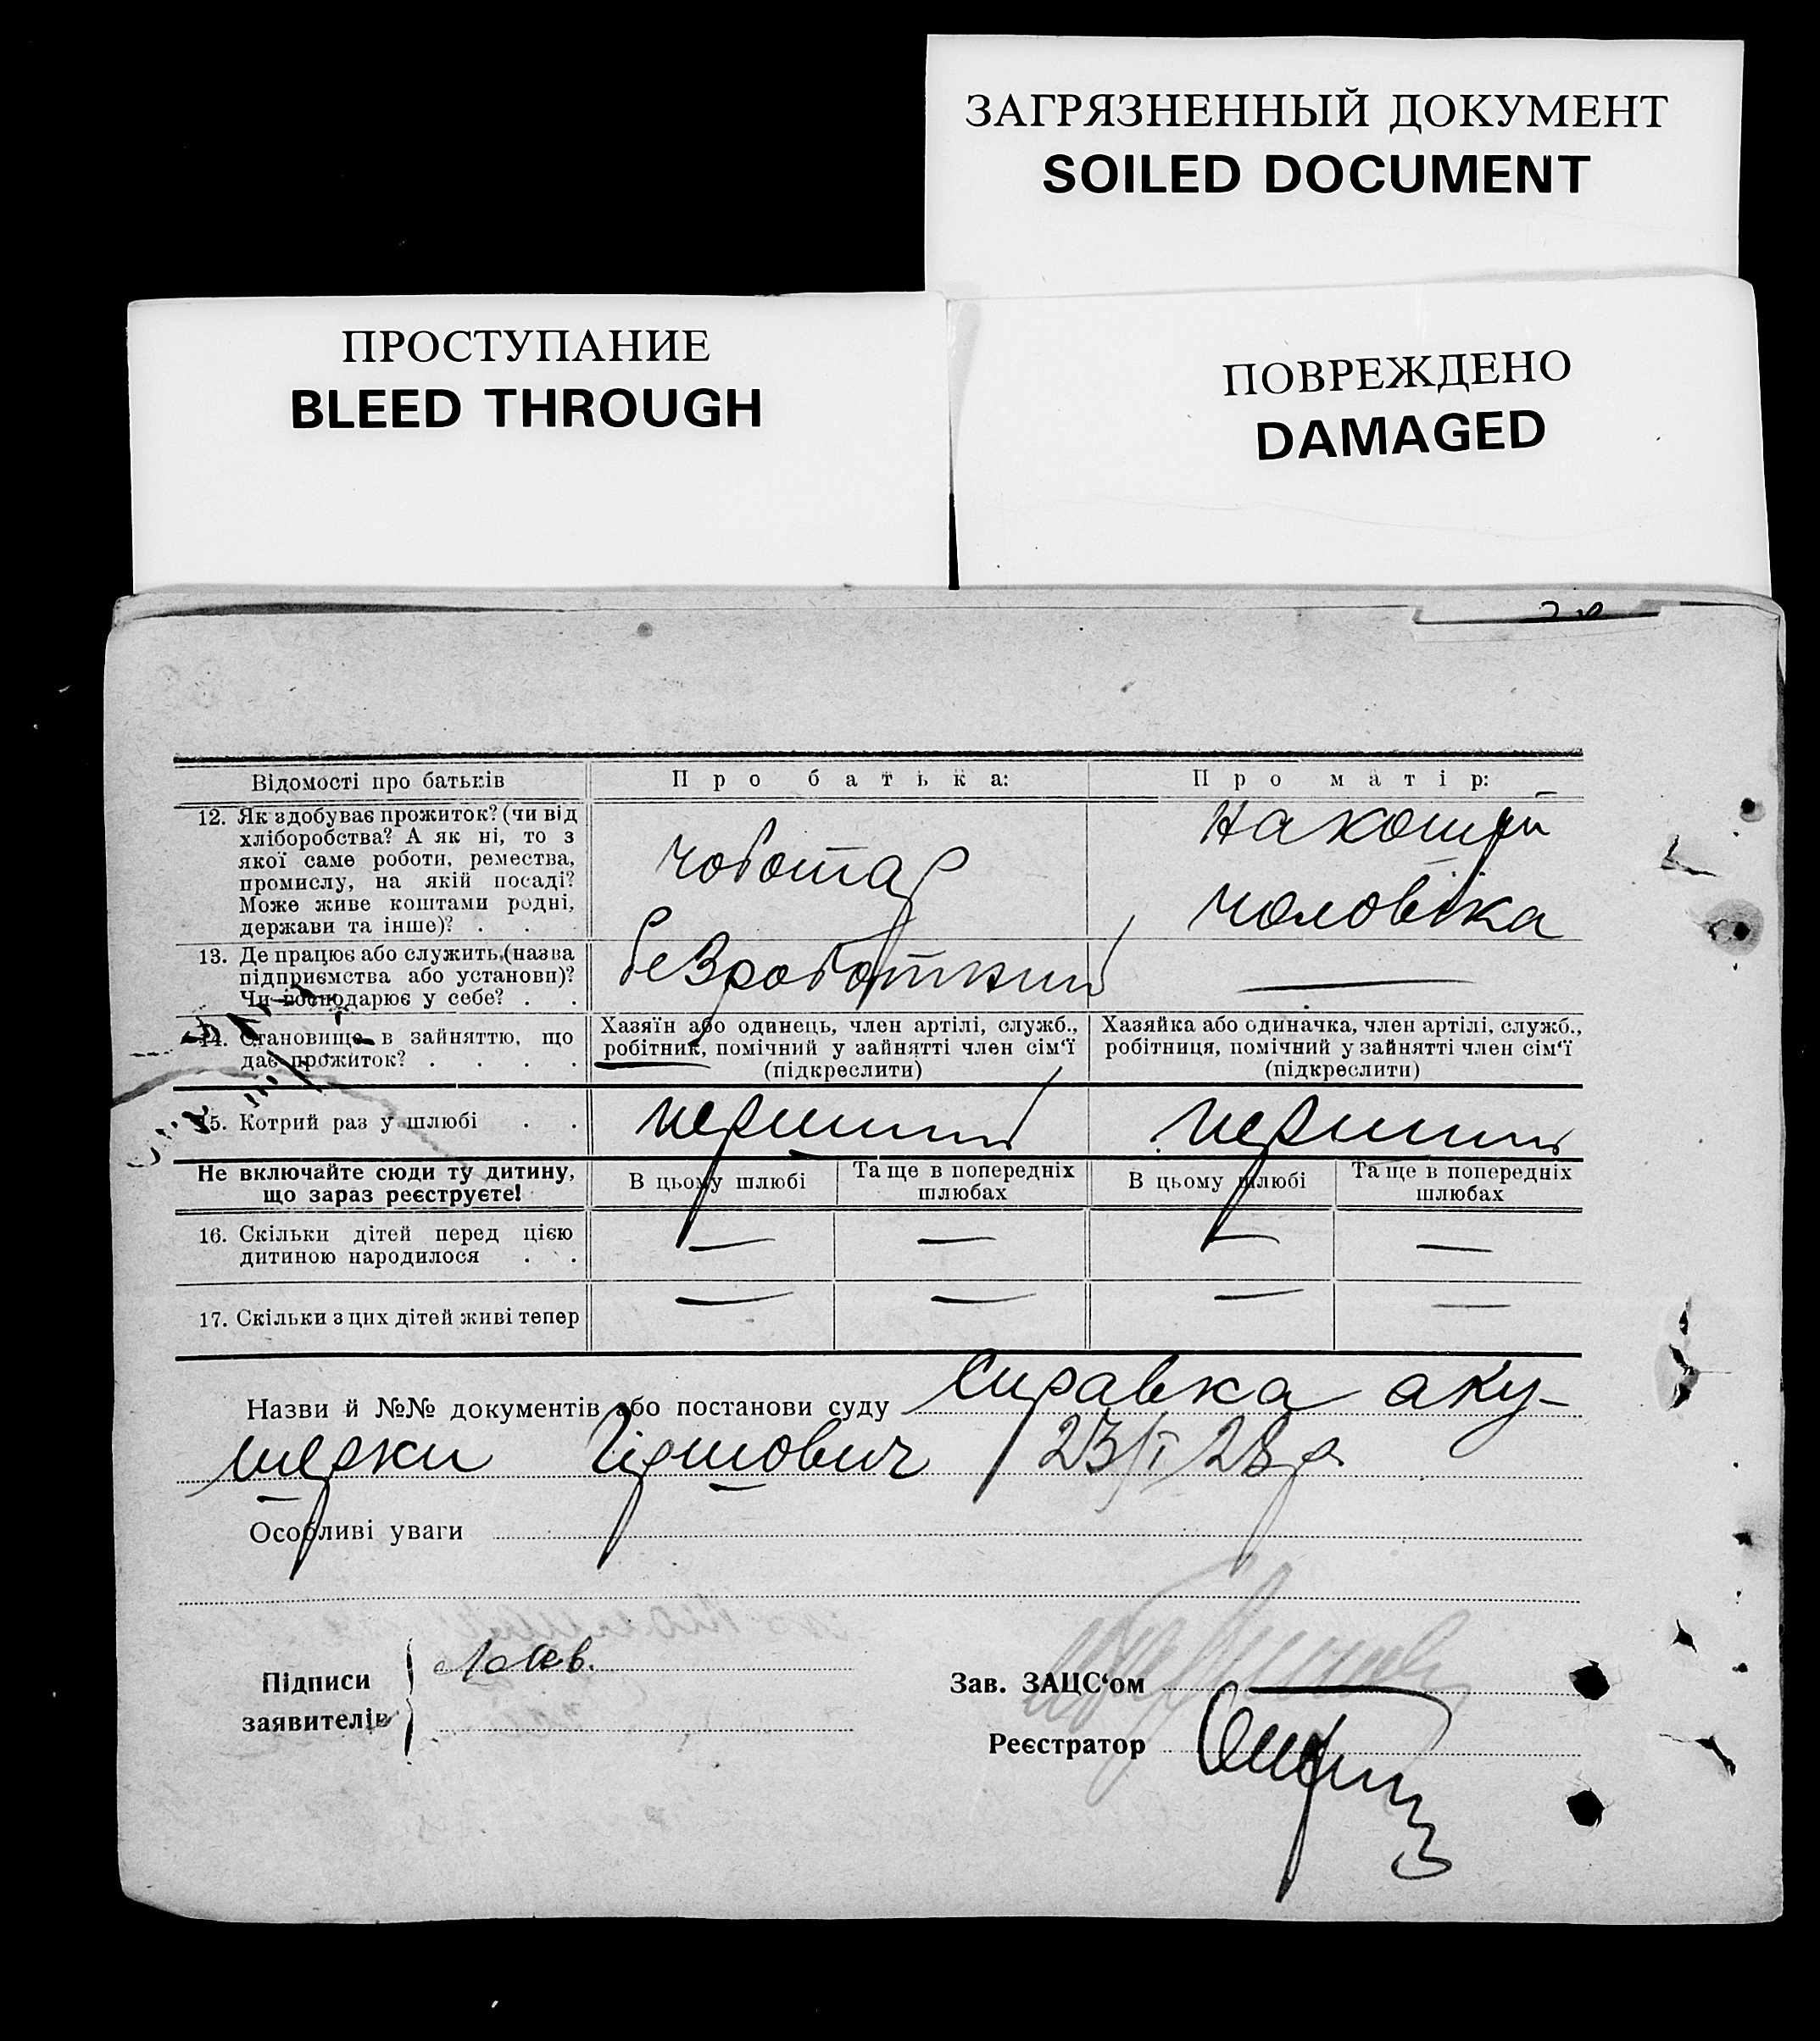 ЗАГРЯЗНЕННЫЙ ДОКУМЕНТ
SOILED DOCUMENT
ПРОСТУПАНИЕ
BLEED THROUGH
ПОВРЕЖДЕНО
DAMAGED
Відомості про батьків
Про батька:
Про матір:
12. Як здобуває прожиток? (чи від
хліборобства? А як ні, то з
якої саме роботи, ремества,
промислу, на якій посаді?
Може живе коштами родні,
держави та інше)? . .
чоботар
на кошти
чоловіка
13. Де працює або служить (назва
підприємства або установи)?
Чи господарює у себе? . .
безроботний
—
14. Становище в зайняттю, що
дає прожиток? . . . .
Хазяїн або одинець, член артілі, служб.,
робітник, помічний у зайнятті член сім‘ї
(підкреслити)
Хазяйка або одиначка, член артілі, служб.,
робітниця, помічний у зайнятті член сім‘ї
(підкреслити)
15. Котрий раз у шлюбі . .
перший
перший
Не включайте сюди ту дитину,
що зараз реєструєте!
В цьому шлюбі
Та ще в попередніх
шлюбах
В цьому шлюбі
Та ще в попередніх
шлюбах
16. Скільки дітей перед цією
дитиною народилося . .
— — — —
17. Скільки з цих дітей живі тепер
— — — —
Назви й №№ документів або постанови суду Справка аку-
шерки Гіршович 23/I 28 р
Особливі уваги
Підписи
заявителів
Зав. ЗАЦС‘ом
Реєстратор